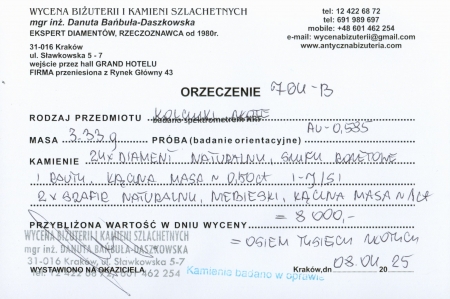 WYCENA BIŻUTERII I KAMIENI SZLACHETNYCH
mgr inż. Danuta Bańbuła-Daszkowska
EKSPERT DIAMENTÓW, RZECZOZNAWCA od 1980r.
31-016 Kraków
ul. Sławkowska 5 - 7
wejście przez hall GRAND HOTELU
FIRMA przeniesiona z Rynek Główny 43
tel: 12 422 68 72
tel: 691 989 697
mobile: +48 601 462 254
e-mail: wycenabizuterii@gmail.com
www.antycznabizuteria.com
ORZECZENIE 704-B
RODZAJ PRZEDMIOTU KOLCZYKI ZŁOTE
badano spektrometrem XRF
MASA 3.33g PRÓBA (badanie orientacyjne) AU-0,585
KAMIENIE 24x DIAMENT NATURALNY, SZLIF
1 BAUTY, ŁĄCZNA MASA ~ 0,50ct I-J/SI
2x SZAFIR NATURALNY, NIEBIESKI, ŁĄCZNA MASA ~ 1ct
PRZYBLIŻONA WARTOŚĆ W DNIU WYCENY = 8 000,-
WYCENA BIŻUTERII I KAMIENI SZLACHETNYCH
mgr inż. DANUTA BAŃBUŁA-DASZKOWSKA
31-016 Kraków, ul. Sławkowska 5-7
tel. 12 422 68 72, 601 462 254
= OSIEM TYSIĘCY ZŁOTYCH
WYSTAWIONO NA OKAZICIELA
Kamienie badano w oprawie
Kraków,dn 08.04 2025